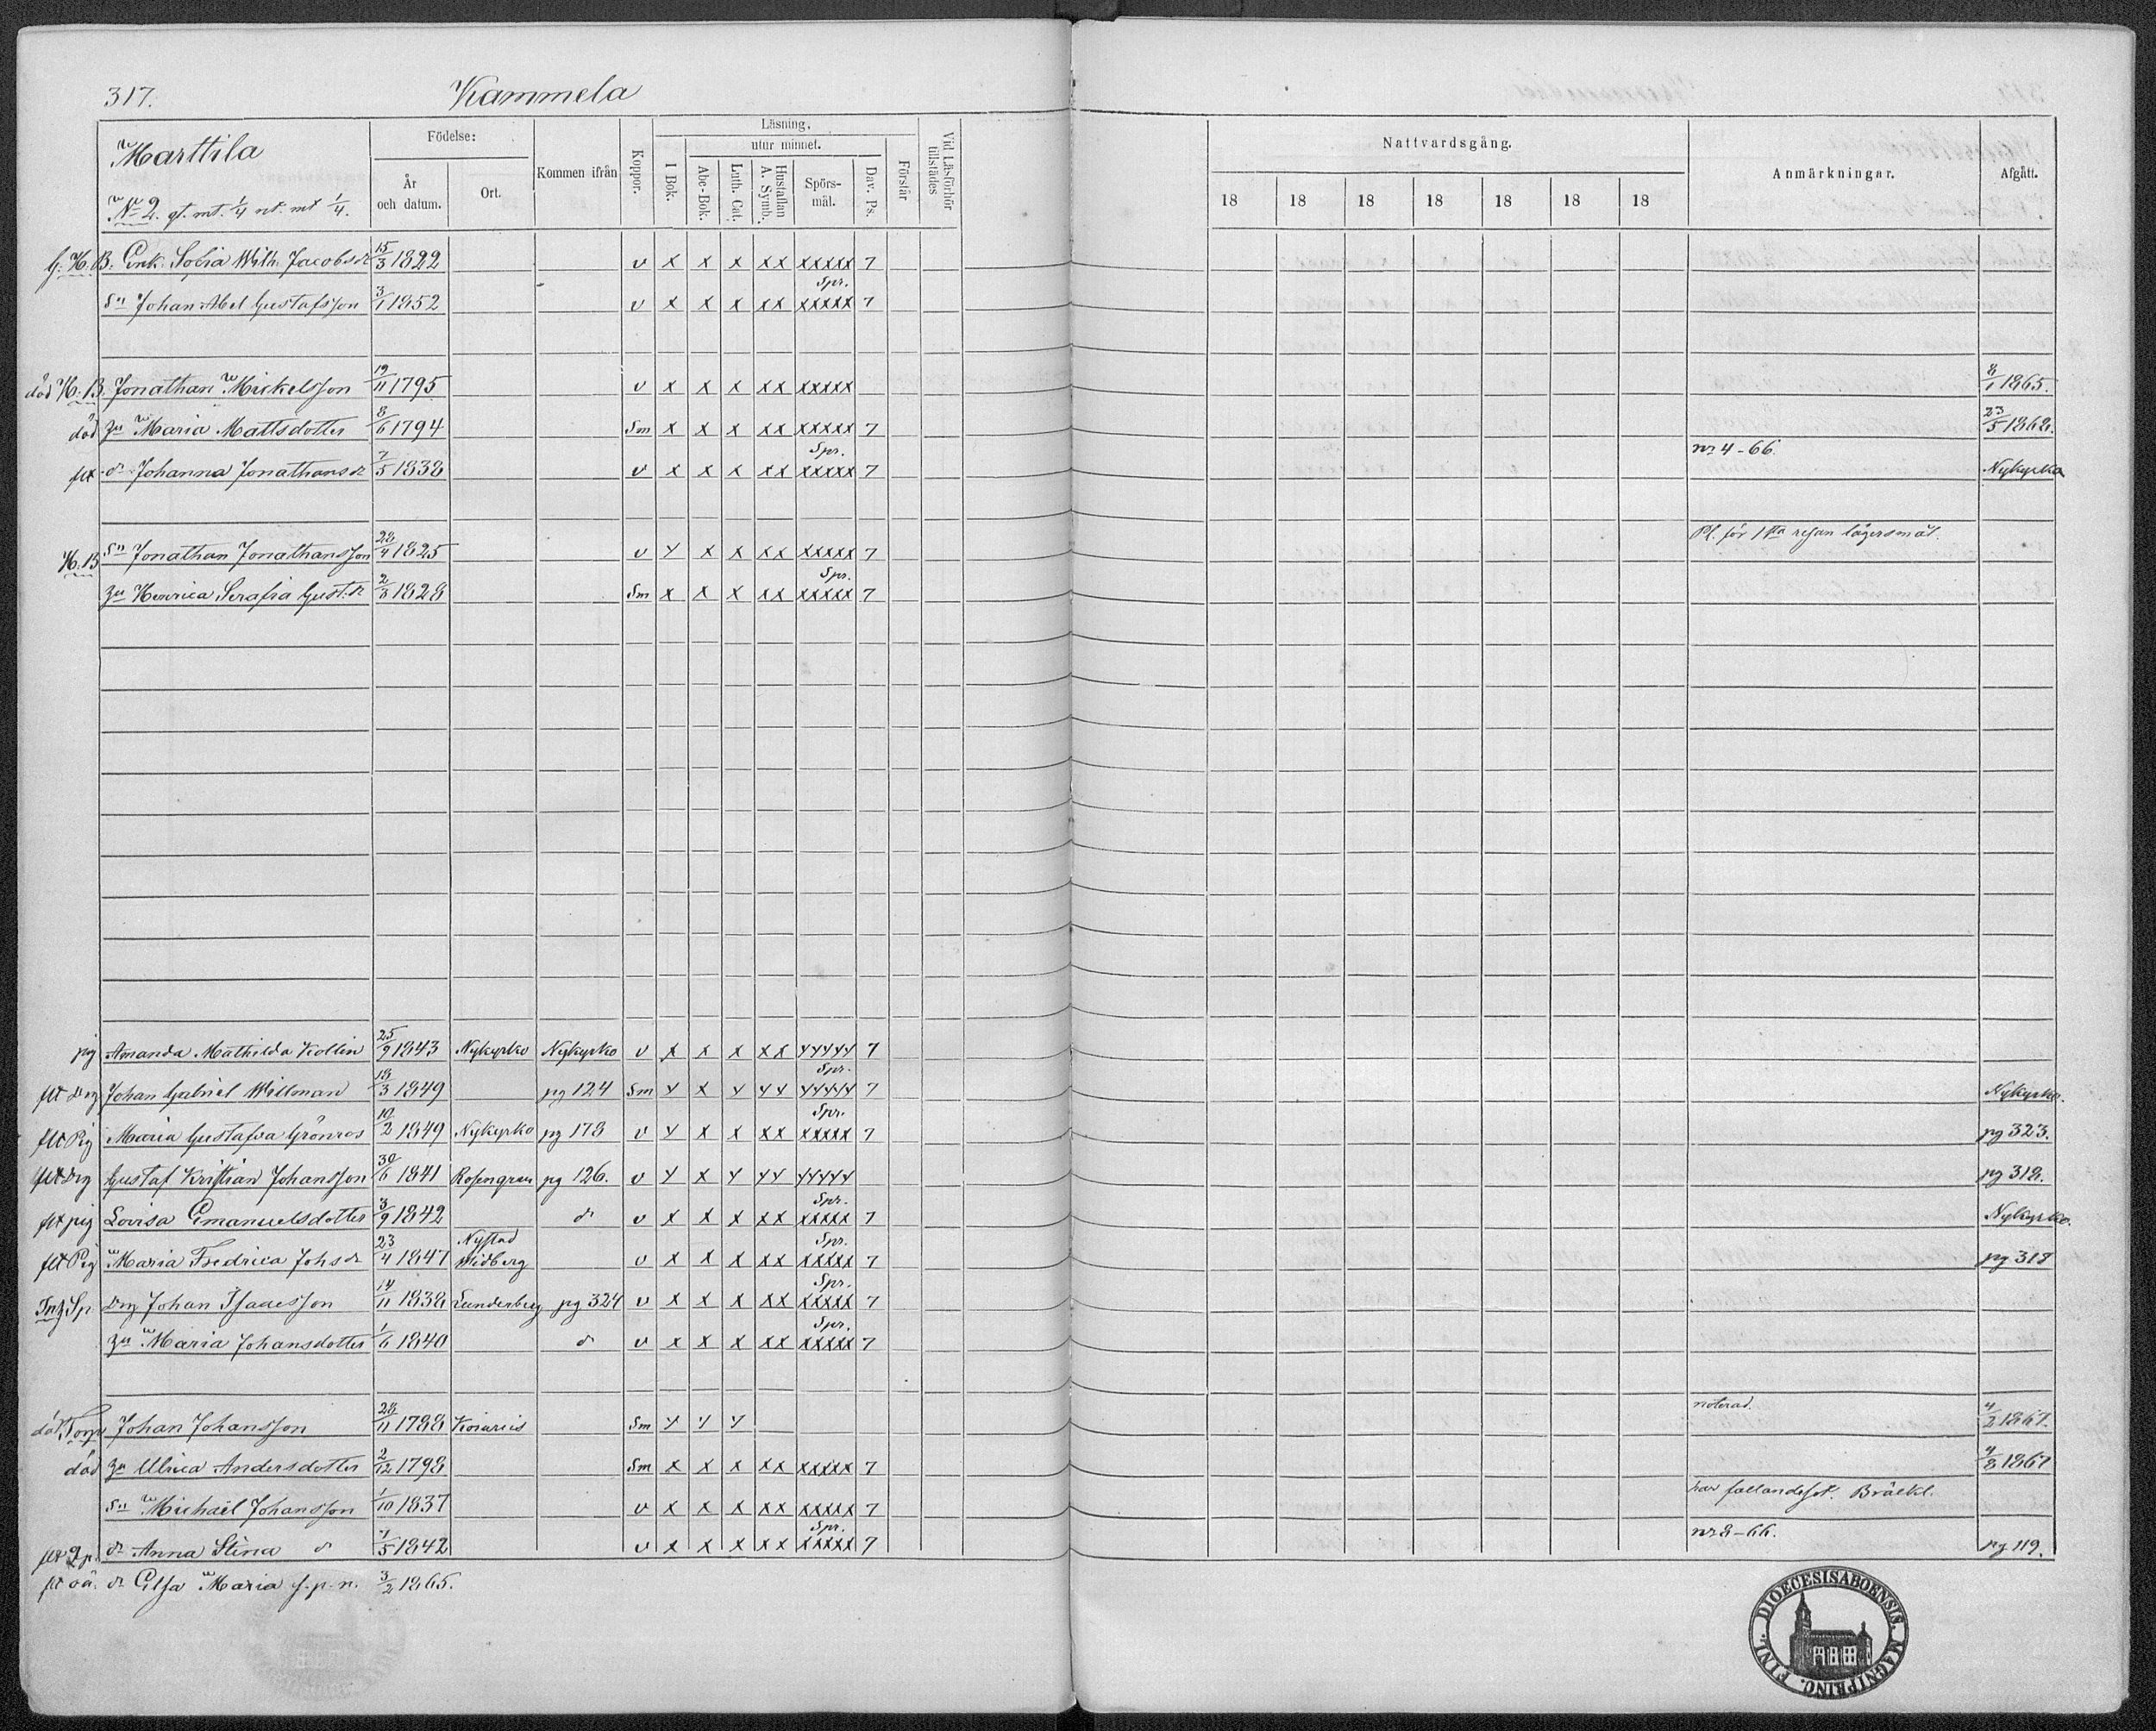 317. Kammela
Marttila
No 2. gt. mt. 1/4 nt. mt 1/4.
Födelse:
År och datum.
Ort.
Kommen ifrån
Koppor.
Läsning.
utur minnet.
I Bok.
Abc-Bok.
Luth. Cat.
Hustaflan A. Symb.
Spörs-mål.
Dav. Ps.
Förstår
Vid Läsförhör tillstädes
Nattvardsgång.
18 18 18 18 18 18 18
Anmärkningar.
Afgått.
G. H. B. Enk. Sofia Wilh. Jacobsdr 15/3 1822 v x x x xx xxxxx 7
Sn Johan Abel Gustafsson 3/1 1852 v x x x xx Spr. xxxxx 7
död H. B. Jonathan Mickelsson 19/11 1795 v x x x xx xxxxx 8/1 1865.
död Hu Maria Mattsdotter 8/6 1794 Sm x x x xx xxxxx 7 23/5 1862.
flt dr Johanna Jonathansdr 7/5 1838 v x x x xx Spr. xxxxx 7 nr 4-66. Nykyrka
H. B sn Jonathan Jonathansson 28/4 1825 v x x x xx xxxxx 7 Pl. för 1sta resan lägersmål.
Hu Henrica Serafia Gust.dr 2/3 1828 Sm x x x xx Spr. xxxxx 7
pig Amanda Mathilda Kollin 25/9 1843 Nykyrko Nykyrko v x x x xx xxxxx 7
flt Drg Johan Gabriel Willman 18/3 1849 pg 124 Sm x x x xx Spr. xxxxx 7 Nykyrko.
flt Pig Maria Gustafva Grönros 10/2 1849 Nykyrko pg 178 v x x x xx Spr. xxxxx 7 pg 323.
flt Drg Gustaf Kristian Johansson 30/6 1841 Rosengren pg 126. v x x x xx xxxxx pg 318.
flt pig Lovisa Emanuelsdotter 3/9 1842 dr v x x x xx Spr. xxxxx 7 Nykyrko.
flt Pig Maria Fredrica Johsdr 23/4 1847 Nystad Widberg v x x x xx Spr. xxxxx 7 pg 318
Inh Sp. Drg Johan Isacsson 14/11 1838 Lunderberg pg 324 v x x x xx Spr. xxxxx 7
Hu Maria Johansdotter 1/6 1840 dr v x x x xx Spr. xxxxx 7
död Torp Johan Johansson 28/11 1788 Sm x x x noterad. 4/2 1867.
död Hu Ulrica Andersdotter 2/12 1798 Sm x x x xx xxxxx 7 4/8 1867
Sn Michael Johansson 1/10 1837 v x x x xx xxxxx 7 har fallandesot. Bräckl.
flt dr Anna Stina dr 7/5 1842 v x x x xx Spr. xxxxx 7 nr 8-66. pg 119.
flt oä. dr Elsa Maria f.p.n. 3/2 1865.
FINL. DIOECESIS ABOENSIS MAGNI PRINC.